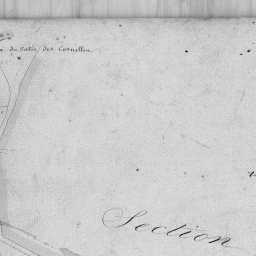 du Patis des Cornilles
Section